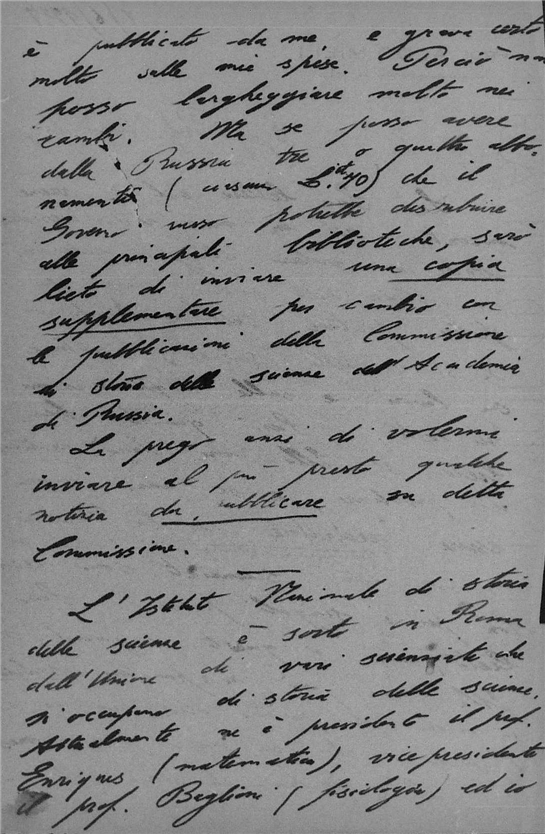 è pubblicato da me e grava certo
molto sulle mie spese. Perciò non
posso largheggiare molto nei
cambi. Ma se posso avere
dalla Russia tre o quattro abbo-
namenti ( L. it. 40) che il
Governo russo potrebbe distribuire
alle principali biblioteche, sarò
lieto di inviare una copia
supplementare per cambio con
le pubblicazioni della Commissione
di storia delle scienze dell'Academia
di Russia.
La prego anzi di volermi
inviare al più presto qualche
notizia da pubblicare su detta
Commissione.
L'Istituto Nazionale di storia
delle scienze è sorto in Roma
dall'Unione di vari scienziati che
si occupano di storia delle scienze.
Attualmente ne è presidente il prof.
Enriques (matematico), vicepresidente
il prof. Baglioni (fisiologia) ed io